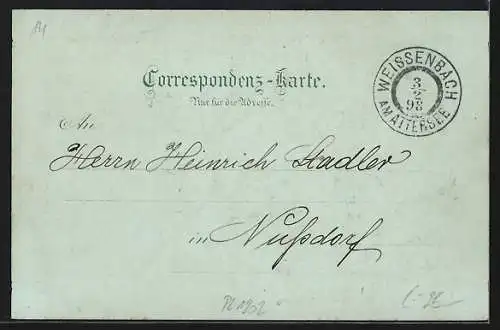 Correspondenz-Karte.
Nur für die Adresse.
WEISSENBACH
3/2
98
AM ATTERSEE
An
Herrn Heinrich Stadler
in Nußdorf